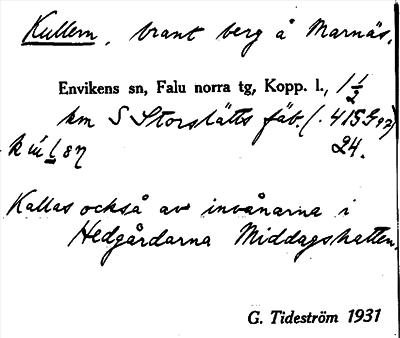 Kullern, brant berg å Marnäs,
Envikens sn, Falu norra tg, Kopp. l., 1 1/2
km S Storslätts fäb.
24.
Kallas också av invånarna i
Hedgårdarna Middagshatten.
G. Tideström 1931